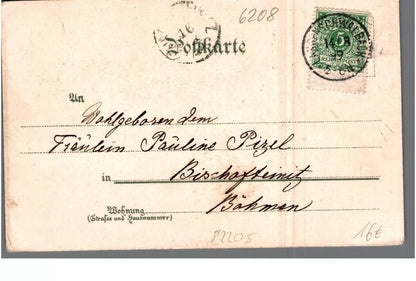 6208
Postkarte
5
An
Wohlgeboren dem
Fräulein Pauline Pizel
in Bischofteinitz
Böhmen
Wohnung
(Straße und Hausnummer)
82205
16€